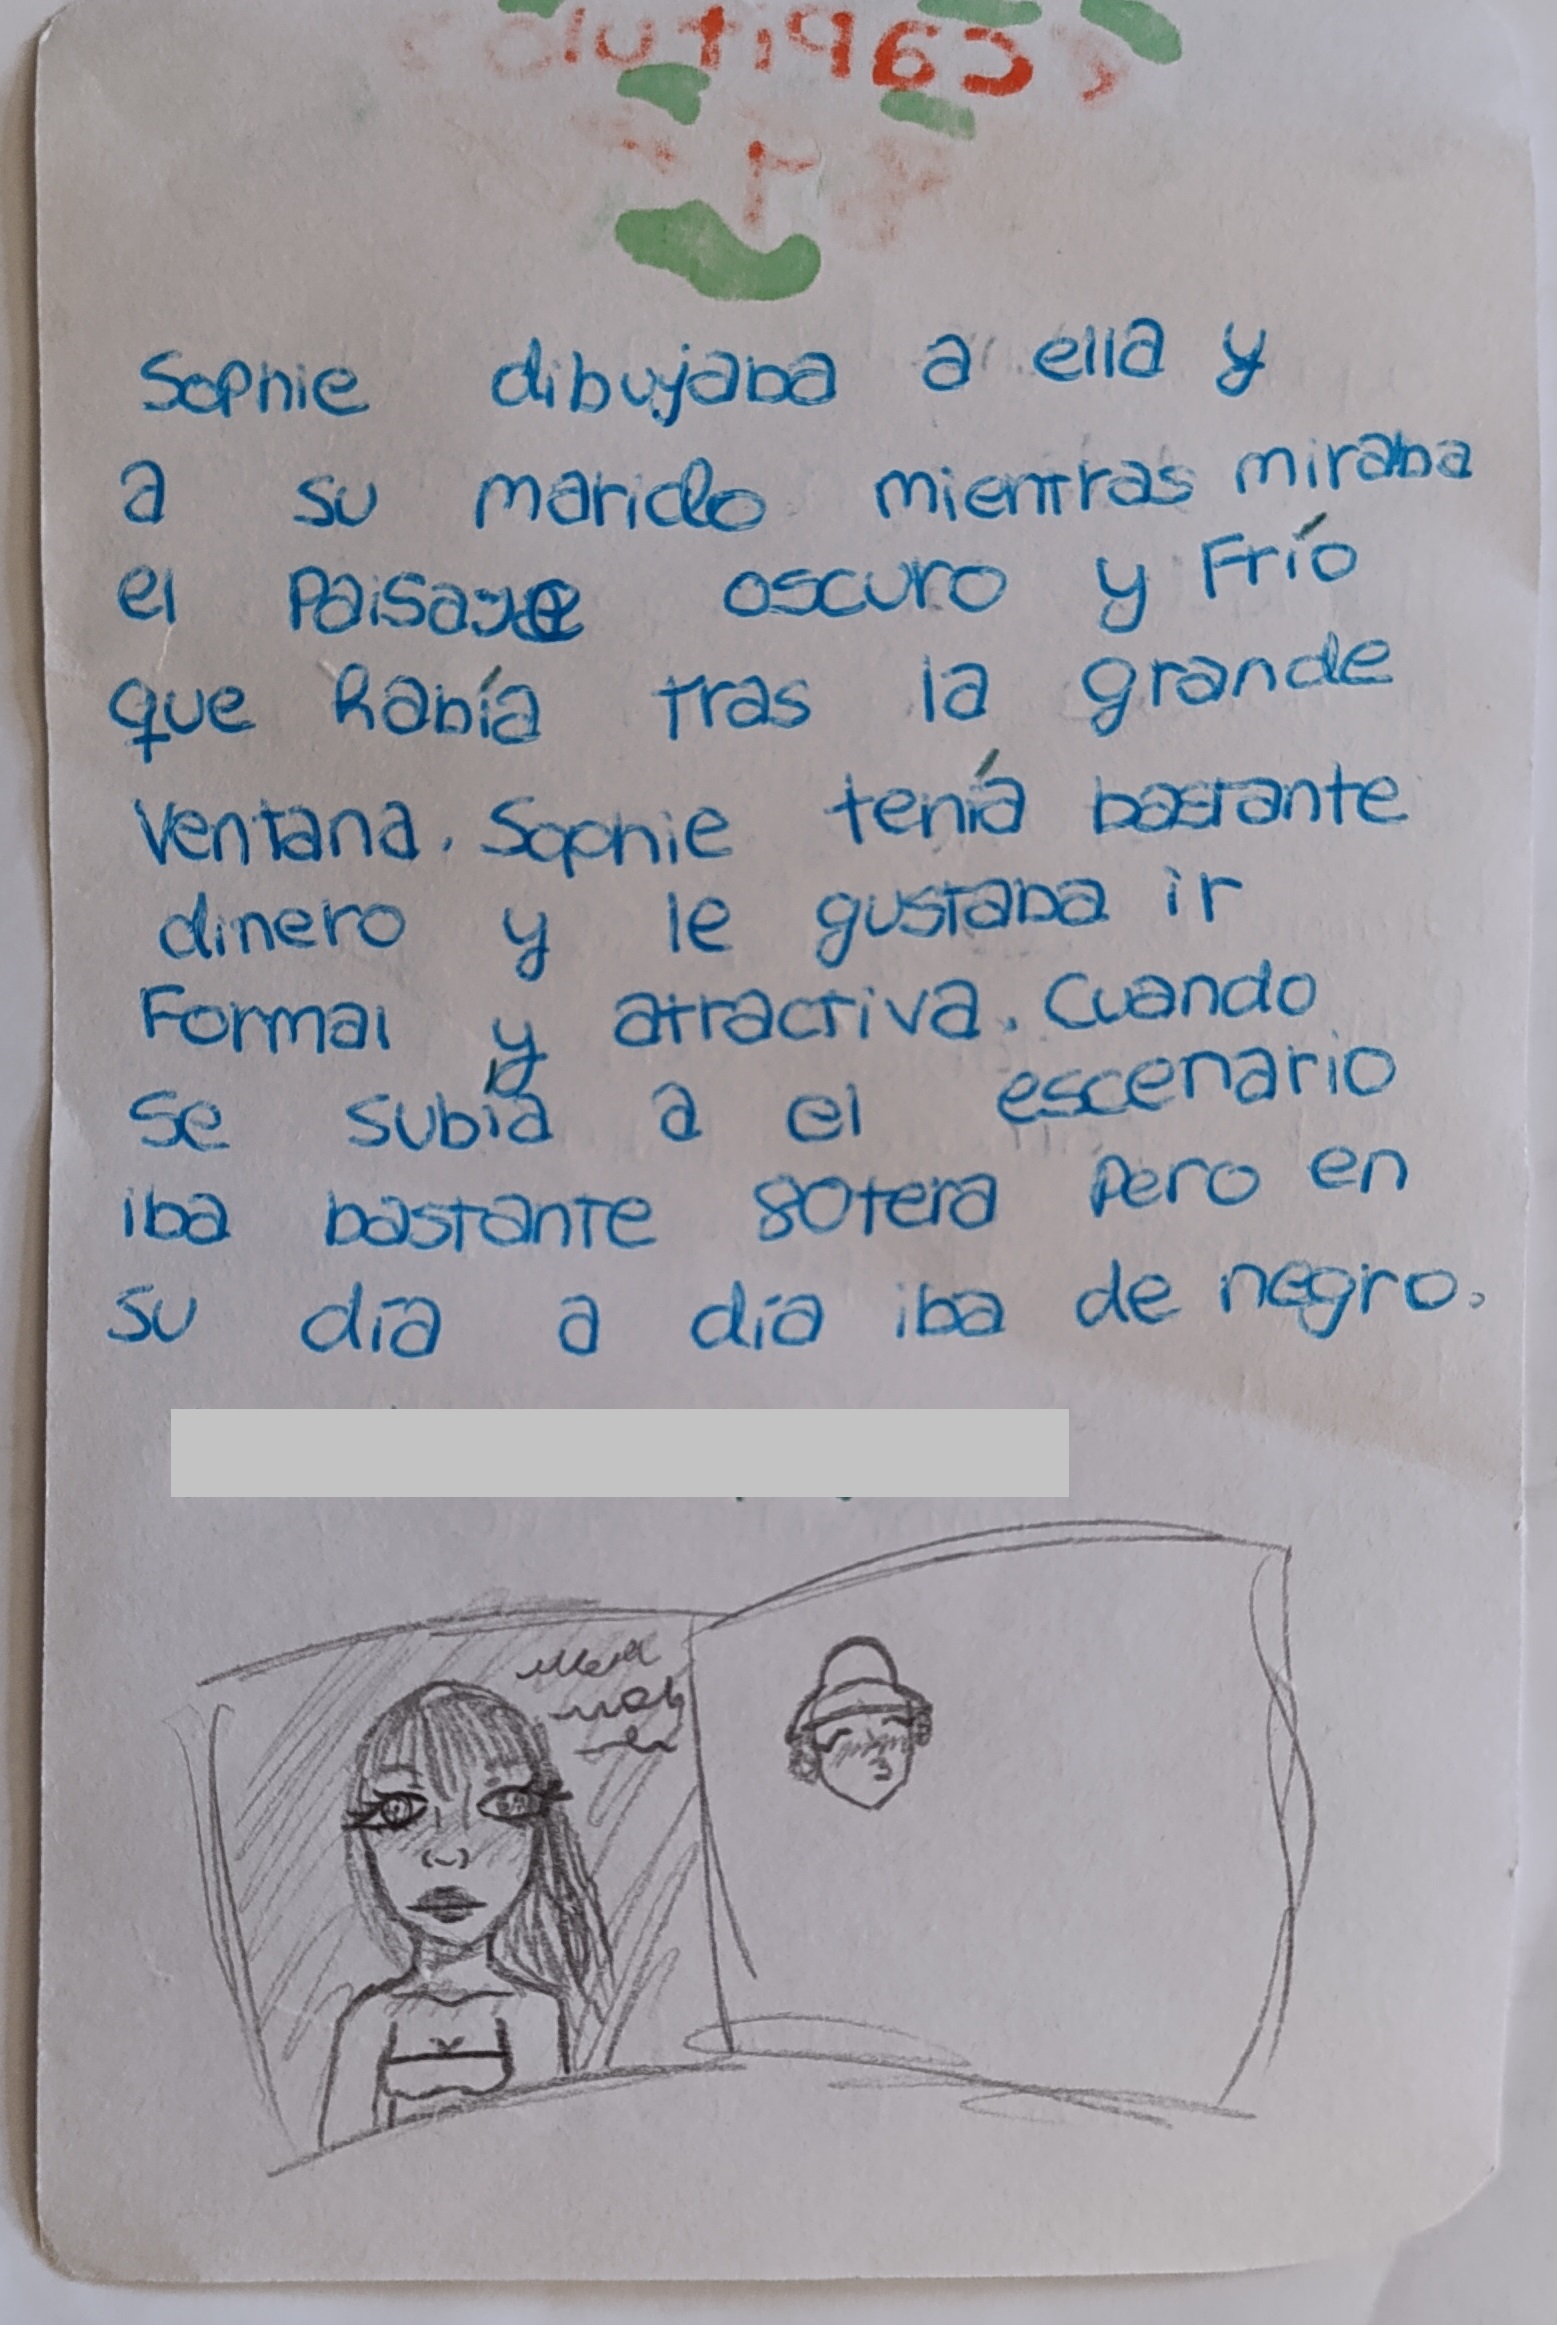 capítulo
1
Sophie dibujaba a ella y
a su marido mientras miraba
el Paisaje oscuro y Frío
que había tras la grande
Ventana. Sophie tenía bastante
dinero y le gustaba ir
Formal y atractiva. Cuando
se subía a el escenario
iba bastante 80tera Pero en
su día a día iba de negro.